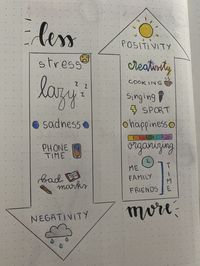 less
stress
lazy z z z
sadness
PHONE
TIME
bad
marks
NEGATIVITY
POSITIVITY
creativity
COOKING
singing
SPORT
happiness
organizing
ME
FAMILY
FRIENDS
TIME
more